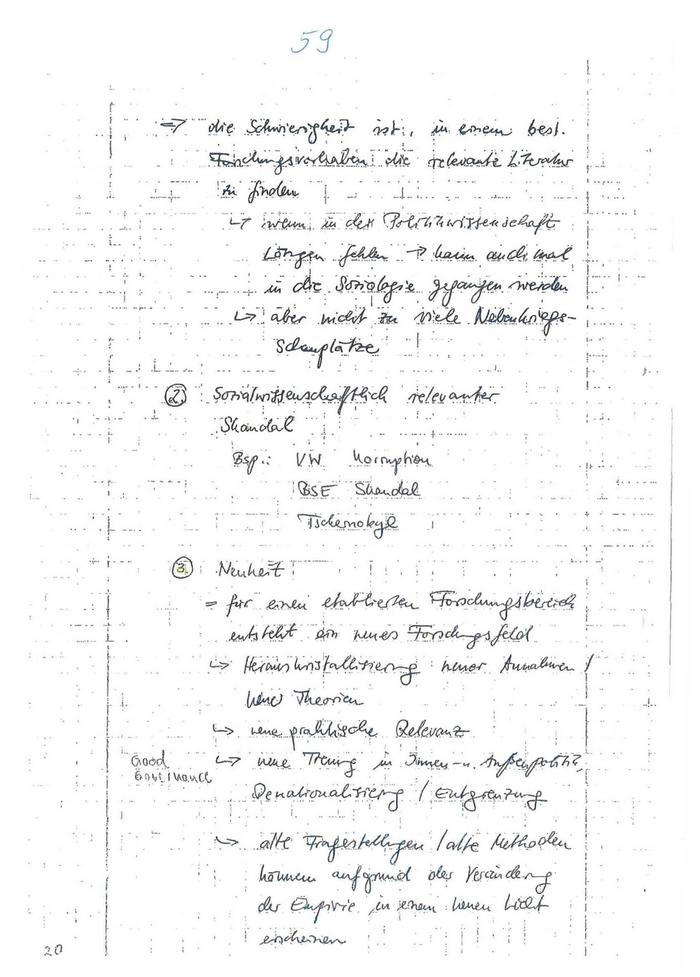 59
⇒ die Schwierigkeit ist, in einem best.
Forschungsvorhaben die relevante Literatur
zu finden
↳ wenn in der Politikwissenschaft
Lösungen fehlen → kann auch mal
in die Soziologie gegangen werden
↳ aber nicht zu viele Nebenkriegs-
Schauplätze
② Sozialwissenschaftlich relevanter
Skandal
Bsp.: VW Korruption
BSE Skandal
Tschernobyl
③ Neuheit
= für einen etablierten Forschungsbereich
entsteht ein neues Forschungsfeld
↳ Herauskristallisierung neuer Annahmen /
neuer Theorien
↳ neue praktische Relevanz
Good
Governance
↳ neue in Innen- u. Außenpolitik,
Denationalisierung / Entgrenzung
↳ alte Fragestellungen / alte Methoden
können aufgrund der Veränderung
der Empirie in einem neuen Licht
erscheinen
20